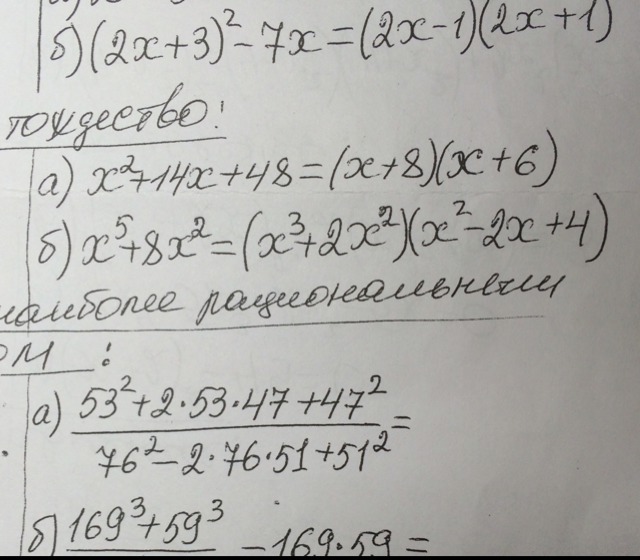 б) (2x+3)² - 7x = (2x-1)(2x+1)
тождество:
а) x²+14x+48=(x+8)(x+6)
б) x⁵+8x²=(x³+2x²)(x²-2x+4)
наиболее рациональным
ом :
а) 53²+2·53·47+47²
76²-2·76·51+51² =
б) 169³+59³
-169·59=